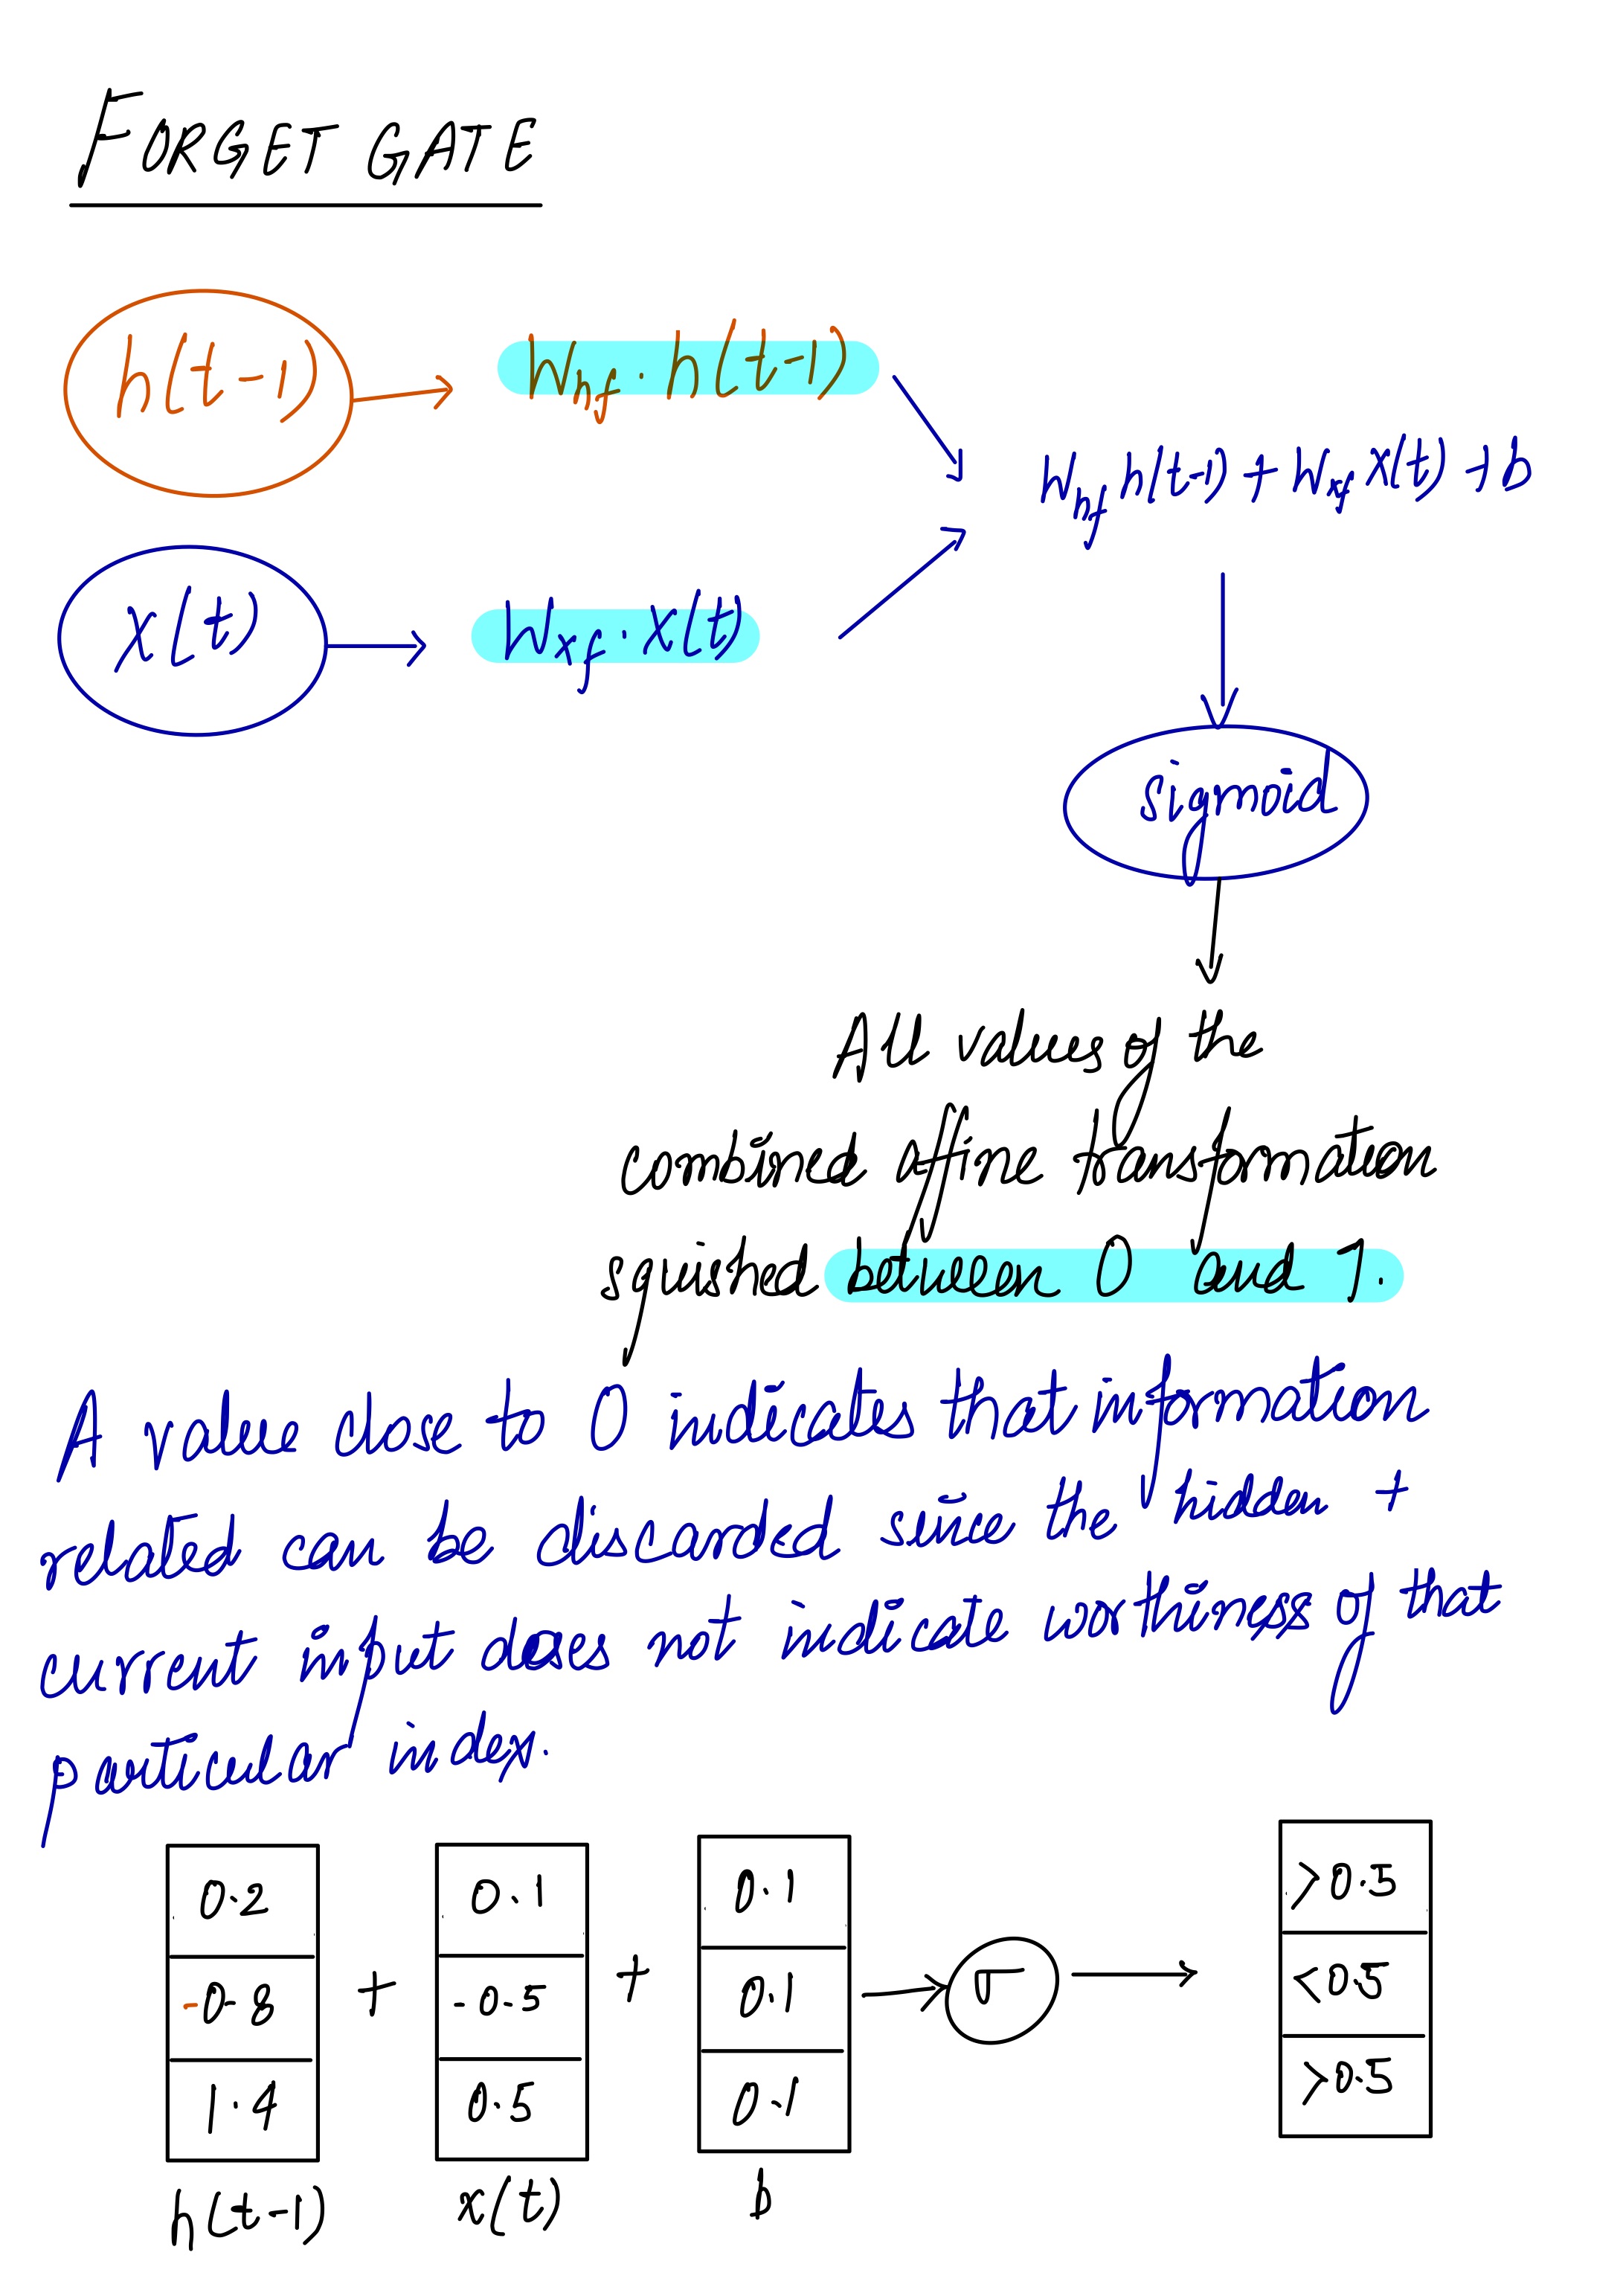 FORGET GATE
h(t-1) W_hf · h(t-1)
W_hf h(t-1) + W_xf X(t) + b
X(t) W_xf · X(t)
sigmoid
All values of the
combined affine transformation
squished between 0 and 1.
A value close to 0 indicates that information
related can be discarded since the hidden +
current input does not indicate worthiness of that
particular index.
0.2 0.1 0.1 >0.5
-0.8 + -0.5 + 0.1 σ <0.5
1.4 0.5 0.1 >0.5
h(t-1) x(t) b